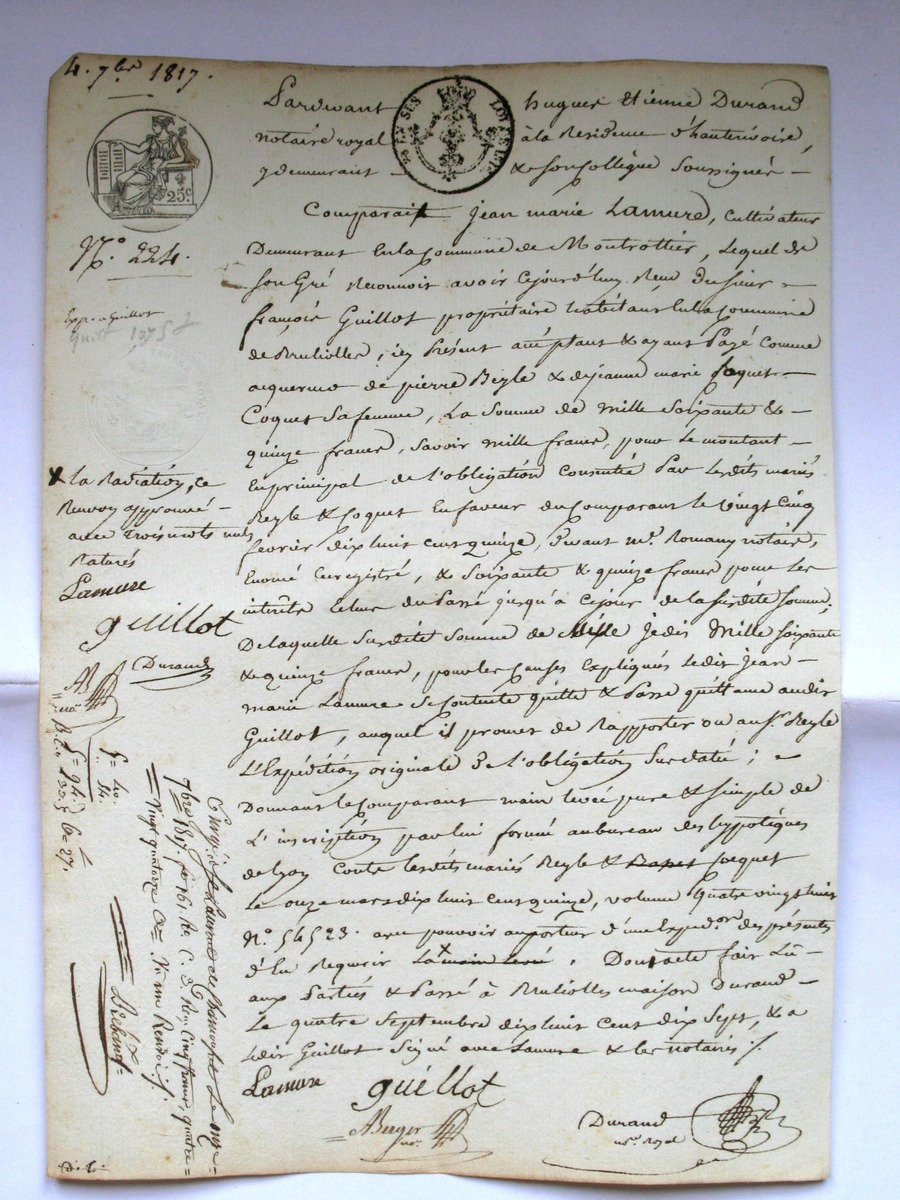 4. 7bre 1817.
25c
N° 224.
Exp. a Guillot
Pardevant hugues Etienne Durand
notaire royal à la Residence d'hauterivoire,
y demeurant & son Collègue Soussignés —
Comparait Jean marie Lamure, Cultivateur
Demeurant en la Commune de Montrottier, Lequel de
son Gré Reconnoit avoir Cejourd'huy Reçu Du sieur
françois Guillot propriétaire habitant en la Commune
de Brullioles, icy Présent acceptant & ayant Payé Comme
acquereur de pierre Reyle & de jeanne marie
Coquet Sa femme, La Somme de Mille Soixante &
quinze francs, Savoir Mille francs, pour Le montant
En principal de L'obligation Consentie Par Lesdits mariés
Reyle & Coquet En faveur du Comparant le Vingt Cinq
fevrier dix huit Cent quinze, Devant Me. Romany notaire,
Enoncé Enregistré, & Soixante & quinze francs pour Les
intérêts du Passé jusqu'à Cejour, de la Susdite Somme;
De laquelle Susdite Somme de Mille Je dis Mille Soixante
& quinze francs, pour les Causes Expliqués Ledit Jean
marie Lamure Se Contente quitte & Passe quittance audit
Guillot, auquel il promet de Rapporter ou aux dits Reyle
L'Expédition originale De l'obligation Susdatée; =
Donnant le Comparant main levée pure & Simple de
L'inscription par lui formée au bureau des hypotèques
de Lyon Contre lesdits mariés Reyle & Coquet
Le onze mars dix huit Cent quinze, volume quatre vingt huit
N°. 54523. avec pouvoir au porteur d'une Expedon. des présentes
d'En Requerir La main levée x. Dont acte fait Lû
aux Parties & Passé à Brullioles maison Durand
Le quatre Septembre dix huit Cent Dix Sept, & a
Ledit Guillot Signé avec Lamure & les notaires ./.
Lamure
guillot
ABerger
nore.
Durand
nre. Royal
x La Radiation, Ce
Renvoy approuvé
avec trois mots nuls
Raturés
Lamure
guillot
Durand
AB
Enregé. à St. Laurent de Chamousset Le onze
7bre 1817. fo. 161 Ro. C. 3. Reçu Cinq francs, quatre
Vingt quatorze Ces. Et un Renvoi ./.